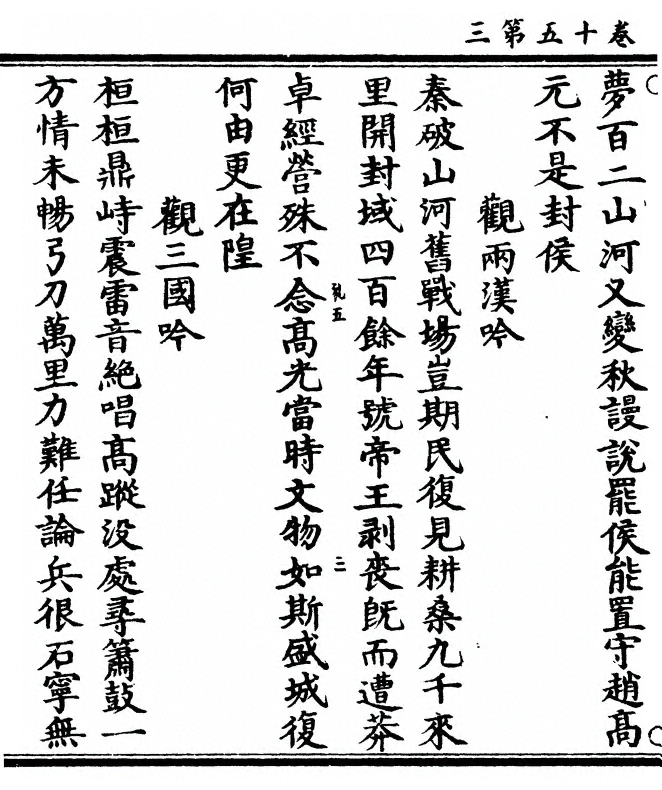 三第五十卷
夢百二山河又變秋謾說罷侯能置守趙高
元不是封侯
觀兩漢吟
秦破山河舊戰場豈期民復見耕桑九千來
里開封域四百餘年號帝王剥喪旣而遭莽
卓經營殊不念高光當時文物如斯盛城復
何由更在隍
觀三國吟
桓桓鼎峙震雷音絶唱高蹤没處尋簫鼓一
方情未暢弓刀萬里力難任論兵很石寧無